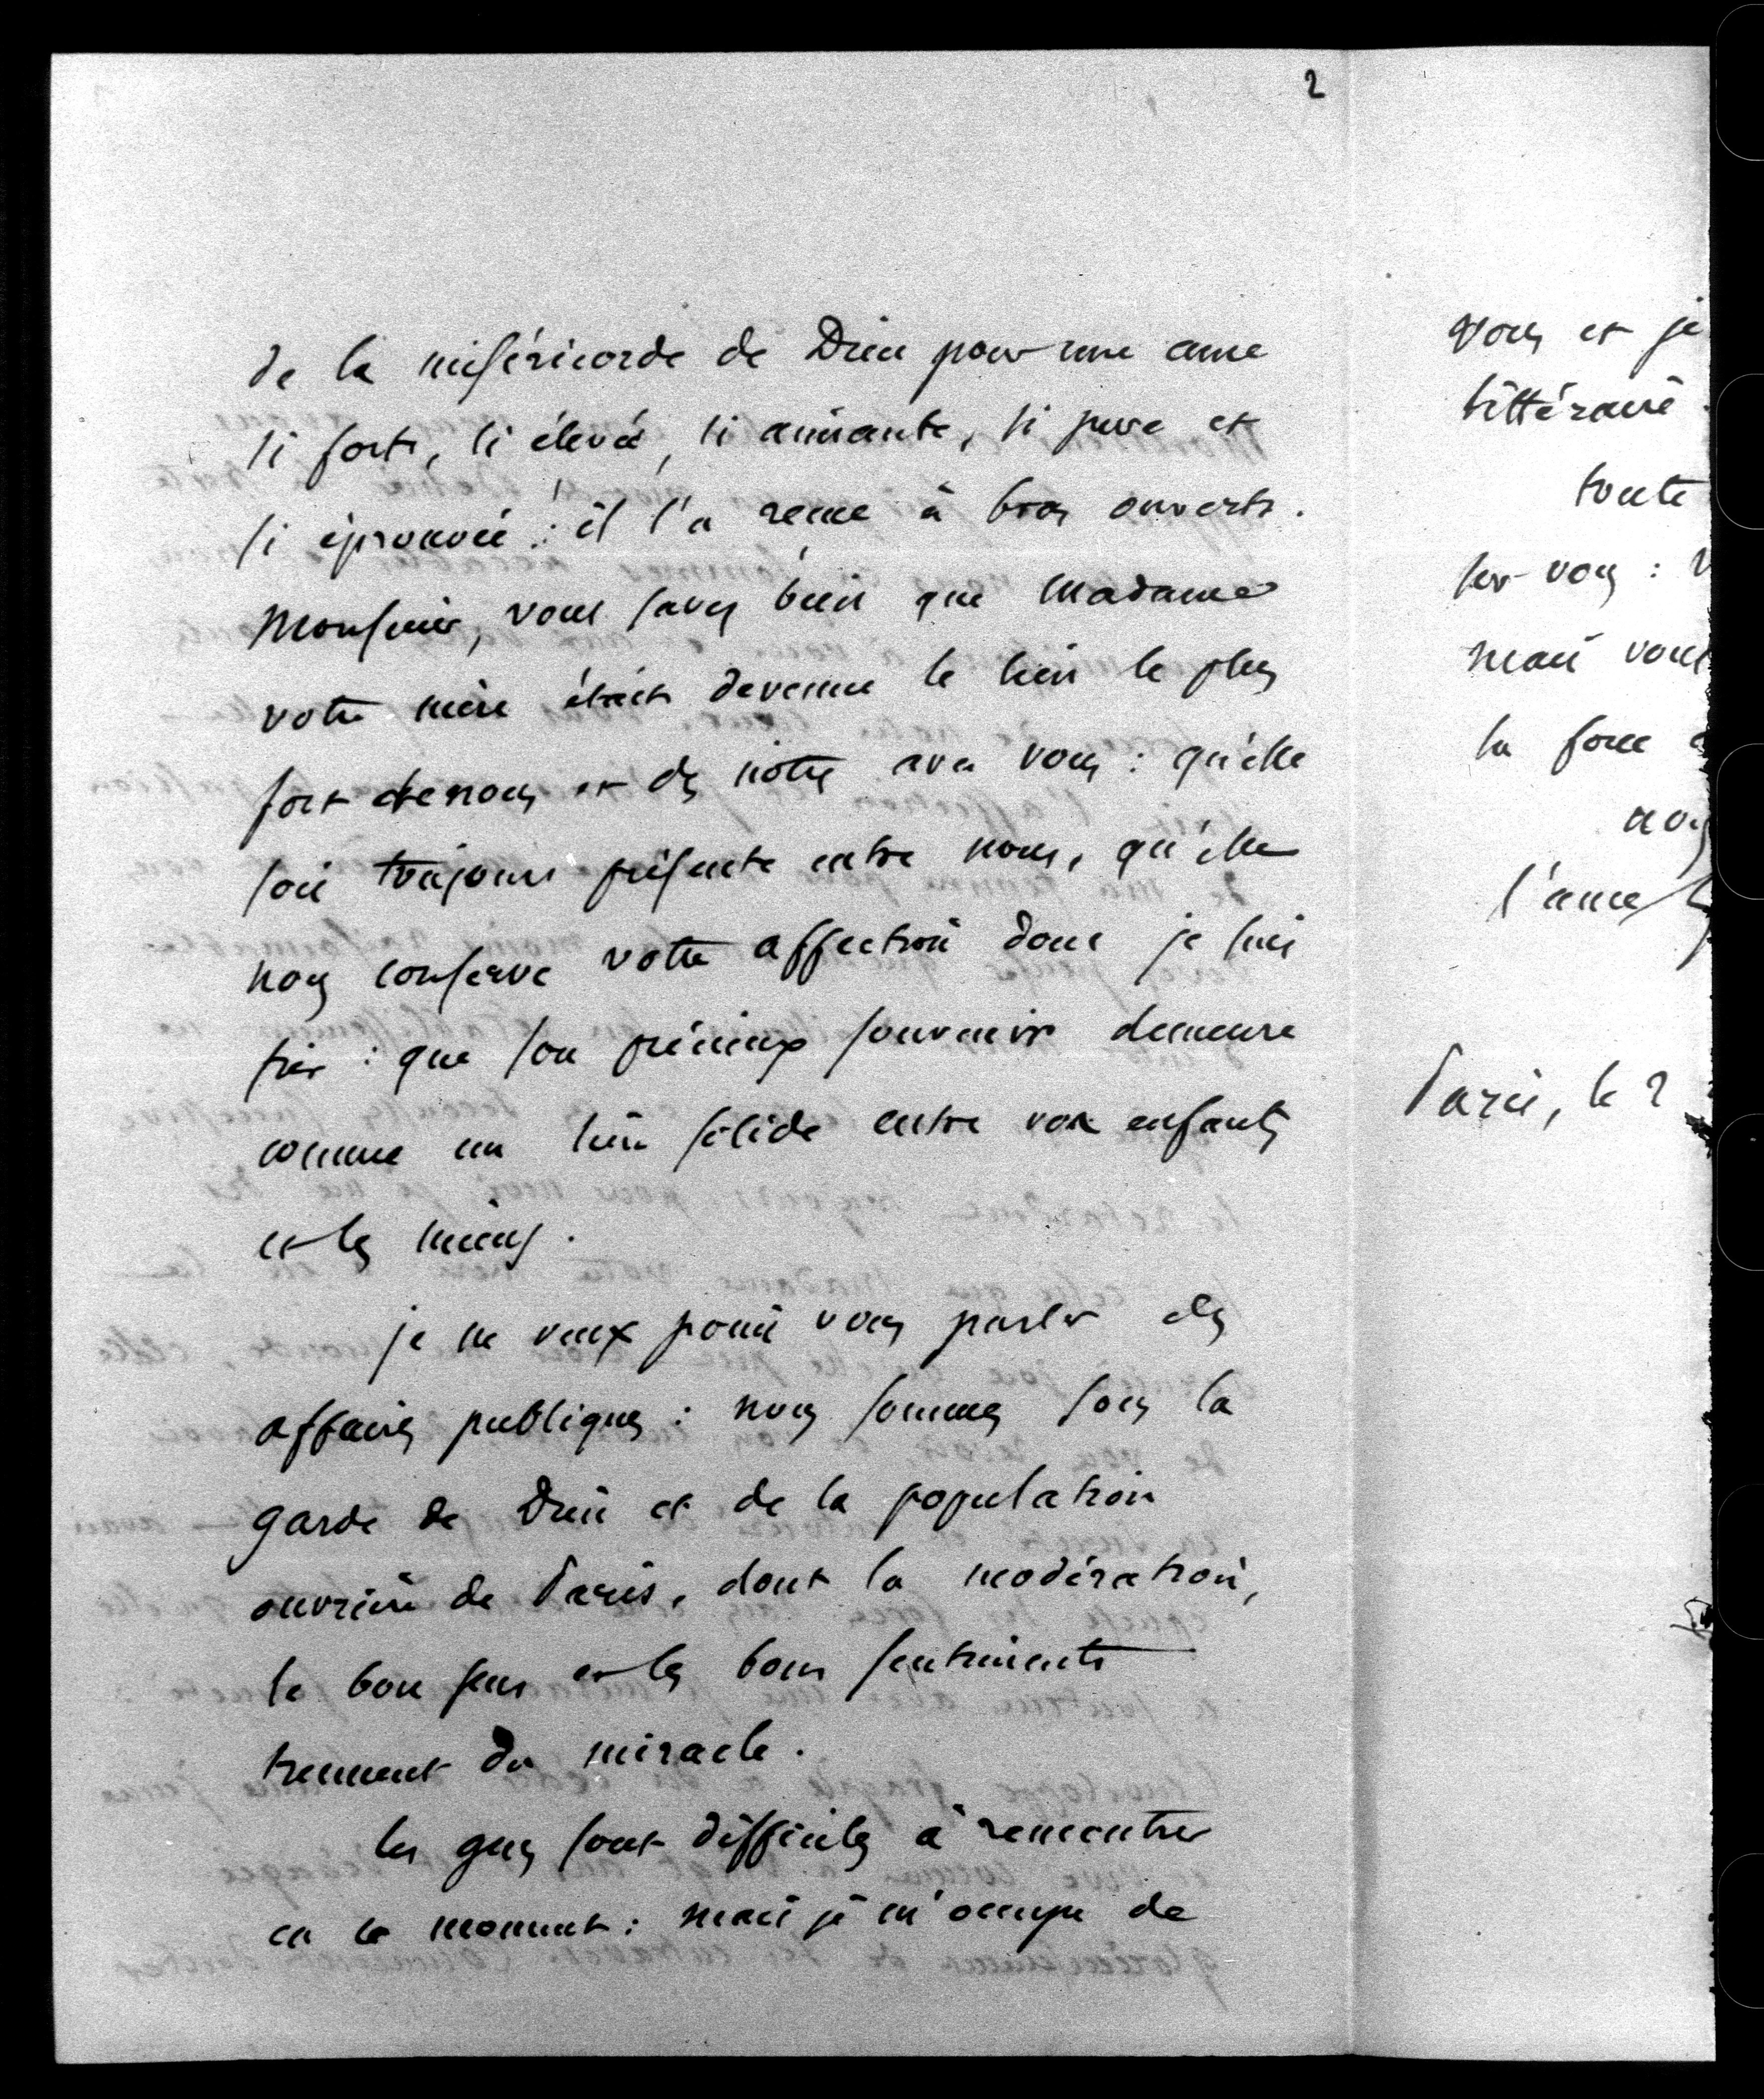 2
de la miséricorde de Dieu pour une ame
si forte, si élevée, si aimante, si pure et
si éprouvée : il l'a reçue à bras ouverts.
Monsieur, vous savez bien que madame
votre mère était devenue le lien le plus
fort de nous et des notres avec vous : qu'elle
soit toujours présente entre nous, qu'elle
nous conserve votre affection dont je suis
fier : que son précieux souvenir demeure
comme un lien solide entre vos enfants
et les miens.
je ne veux point vous parler des
affaires publiques : nous sommes sous la
garde de Dieu et de la population
ouvrière de Paris, dont la modération,
le bon sens et les bons sentiments
tiennent du miracle.
les gens sont difficiles à rencontrer
en ce moment : mais je m'occupe de
vous et je
littéraire
toute
sur vous :
mais vous
la force
l'ame
Paris, le 2